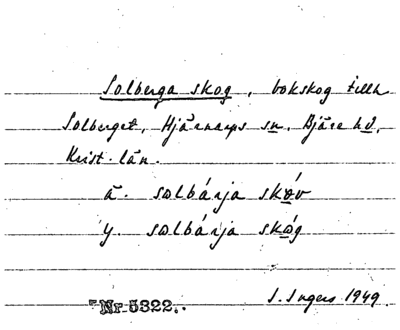 Solberga skog, bokskog tillh
Solberget, Hjärnarps sn, Bjäre hd,
Krist. län.
ä. solbárja skóv
y solbárja skóg
Nr 5322.
I. Ingers 1949.